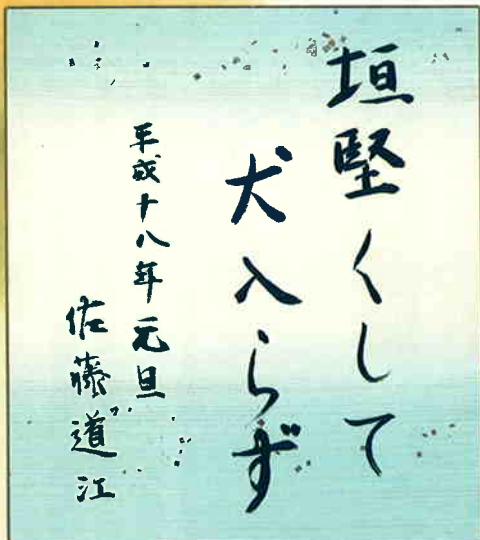 垣堅くして
犬入らず
平成十八年元旦
佐藤道江